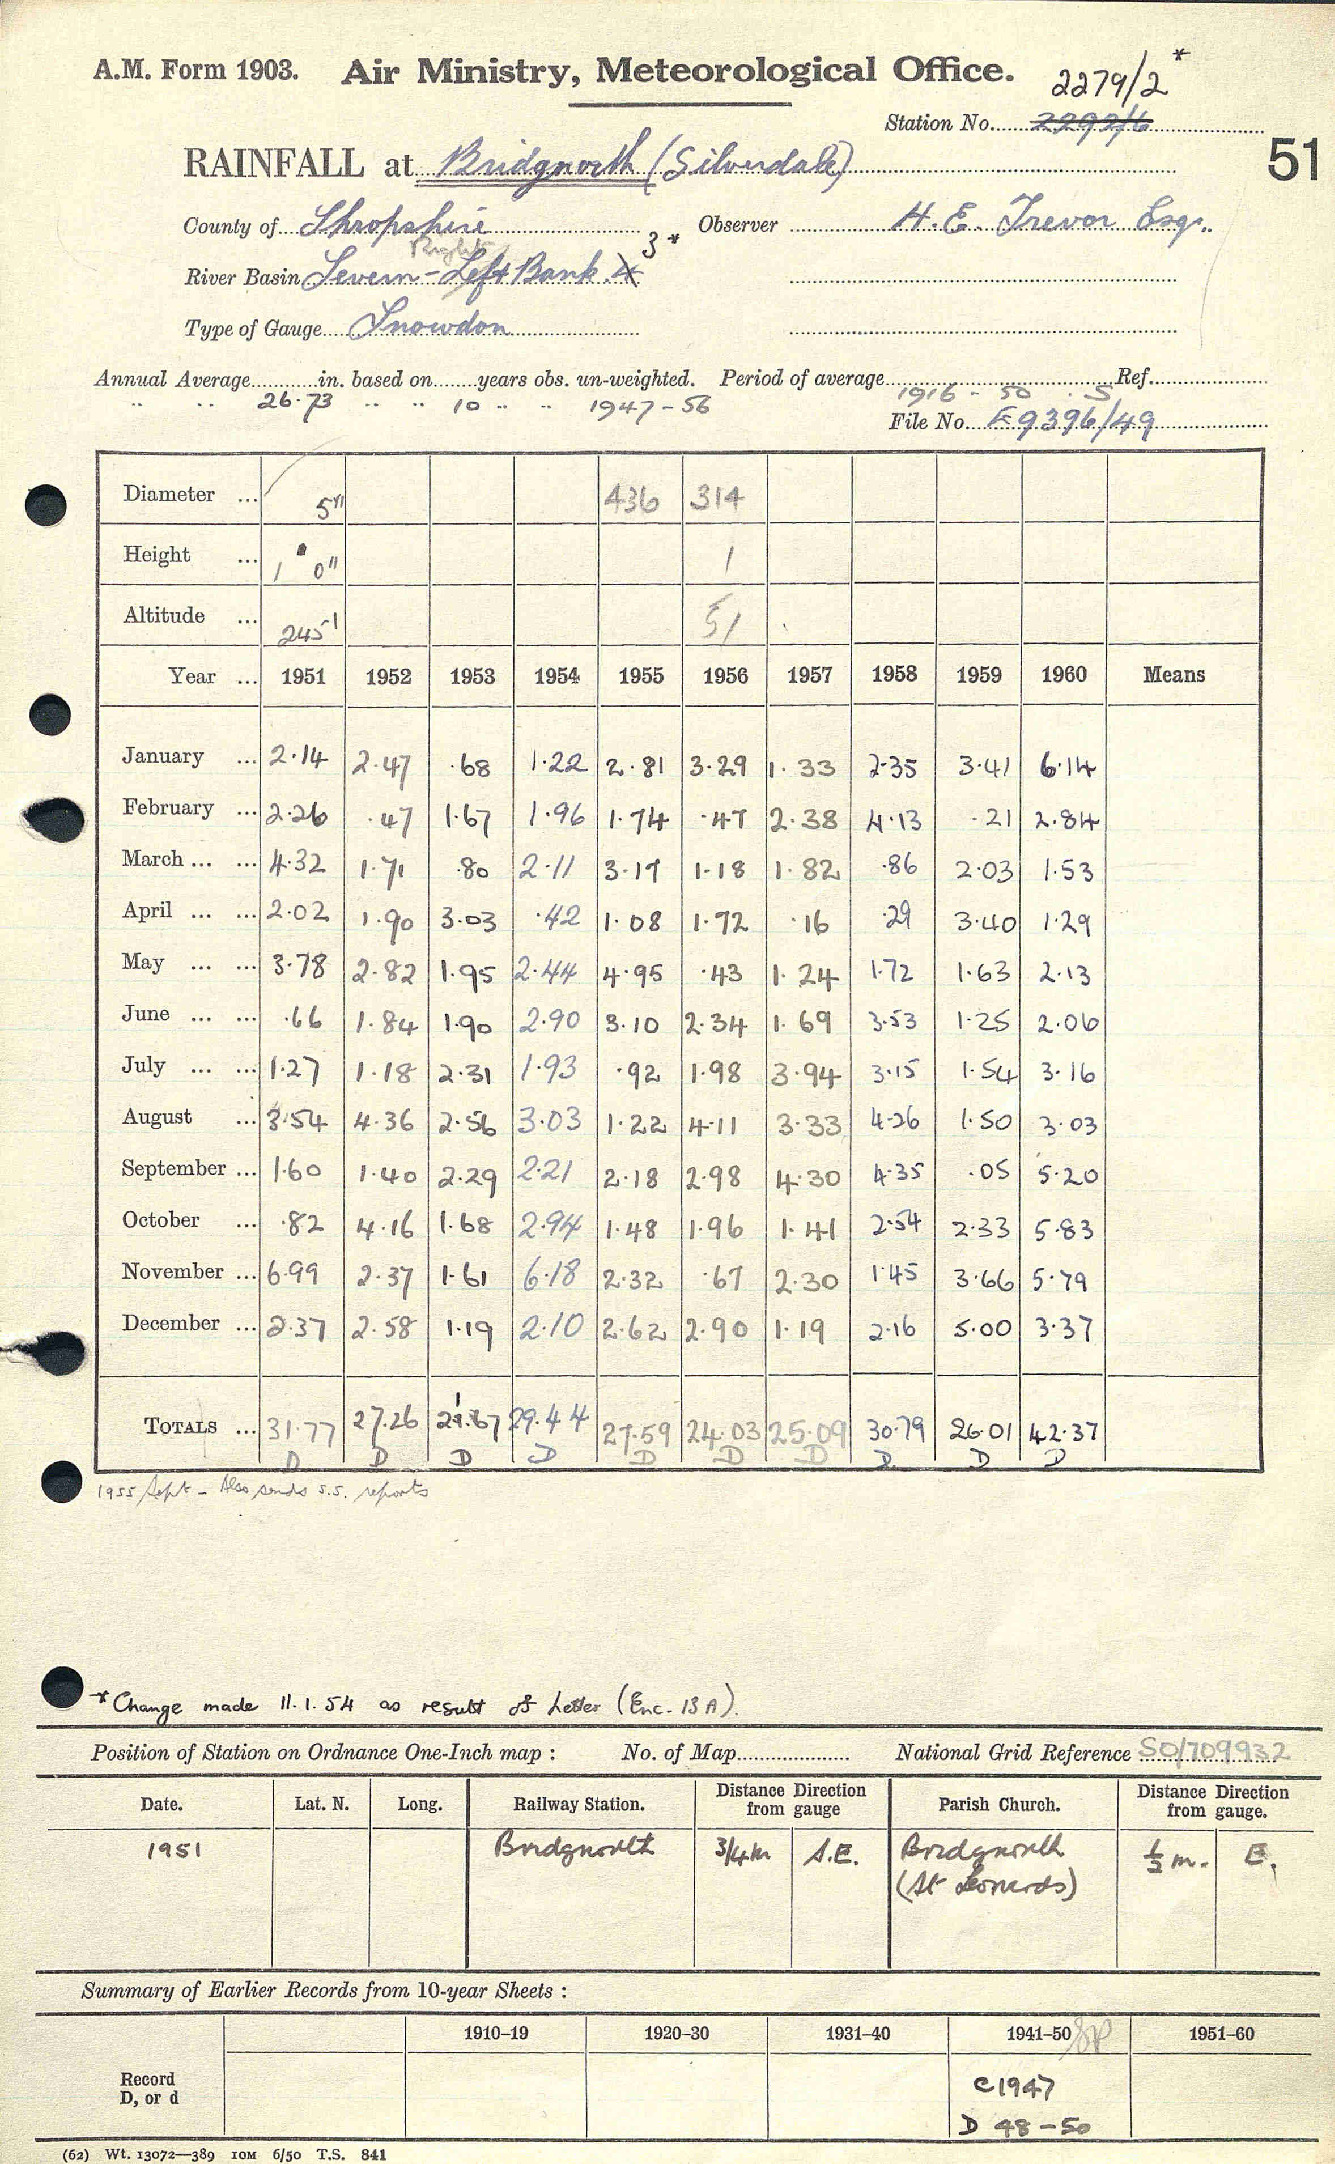 A.M. Form 1903. Air Ministry, Meteorological Office. 2279/2 *
Station No. 2292/6
RAINFALL at Bridgnorth (Silverdale) 51
County of Shropshire Observer H. E. Trevor Esq.
Right 3 *
River Basin Severn - Left Bank. 4
Type of Gauge Snowdon
Annual Average in. based on years obs. un-weighted. Period of average 1916 - 50 Ref.
" " 26.73 " " 10 " " 1947-56
File No. 9396/49
Diameter ... 5" 436 314
Height ... 1' 0" 1
Altitude ... 245' 51
Year ... 1951 1952 1953 1954 1955 1956 1957 1958 1959 1960 Means
January ... 2.14 2.47 .68 1.22 2.81 3.29 1.33 2.35 3.41 6.14
February ... 2.26 .47 1.67 1.96 1.74 .47 2.38 4.13 .21 2.84
March ... ... 4.32 1.71 .80 2.11 3.17 1.18 1.82 .86 2.03 1.53
April ... ... 2.02 1.90 3.03 .42 1.08 1.72 .16 .29 3.40 1.29
May ... ... 3.78 2.82 1.95 2.44 4.95 .43 1.24 1.72 1.63 2.13
June ... ... .66 1.84 1.90 2.90 3.10 2.34 1.69 3.53 1.25 2.06
July ... ... 1.27 1.18 2.31 1.93 .92 1.98 3.94 3.15 1.54 3.16
August ... 3.54 4.36 2.56 3.03 1.22 4.11 3.33 4.26 1.50 3.03
September ... 1.60 1.40 2.29 2.21 2.18 2.98 4.30 4.35 .05 5.20
October ... .82 4.16 1.68 2.94 1.48 1.96 1.41 2.54 2.33 5.83
November ... 6.99 2.37 1.61 6.18 2.32 .67 2.30 1.45 3.66 5.79
December ... 2.37 2.58 1.19 2.10 2.62 2.90 1.19 2.16 5.00 3.37
TOTALS ... 31.77 27.26 21.67 29.44 27.59 24.03 25.09 30.79 26.01 42.37
D D D D D D D D D D
1955 Sept - Also sends S.S. reports
* Change made 11.1.54 as result of Letter (Enc. 13A).
Position of Station on Ordnance One-Inch map : No. of Map National Grid Reference SO/709932
Date. Lat. N. Long. Railway Station. Distance Direction from gauge Parish Church. Distance Direction from gauge.
1951 Bridgnorth 3/4 m S.E. Bridgnorth ½ m. E.
(St Leonards)
Summary of Earlier Records from 10-year Sheets :
1910–19 1920–30 1931–40 1941–50 1951–60
Record C1947
D, or d D 48-50
(62) Wt. 13072—389 10M 6/50 T.S. 841